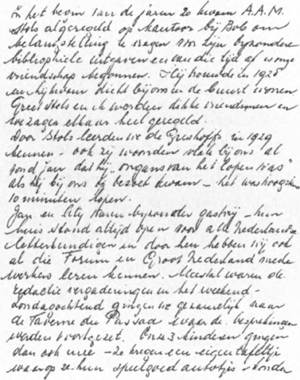 In het begin van de jaren 20 kwam A.A.M.
Stols algeregeld op kantoor bij Bob om
belangstelling te vragen voor zijn byzondere
bibliophiele uitgaven en van die tijd af is onze
vriendschap begonnen. Hij trouwde in 1925
en hij kwam dicht bij ons in de buurt wonen
Greet Stols en ik werden dikke vriendinnen en
we zagen elkaar heel geregeld.
Door Stols leerden we de Greshoffs in 1929
kennen - ook zij woonden vlak bij ons al
vond Jan dat hij "organs van het lopen was"
als hij bij ons op bezoek kwam - het was hoogstens
10 minuten lopen.
Jan en Aty waren byzonder gastvrij - hun
huis stond altijd open voor alle Nederlandse
letterkundigen en door hen hebben wij ook
al die Forum en Groot Nederland mede
werkers leren kennen. Meestal waren de
redactie vergaderingen in het weekend -
zondagochtend gingen we gezamelijk naar
de Taverne du Passage waar de besprekingen
werden voortgezet. Onze 3 kinderen gingen
dan ook mee - ze kregen een eigen tafeltje
waarop ze hun speelgoed autotjes - zonder